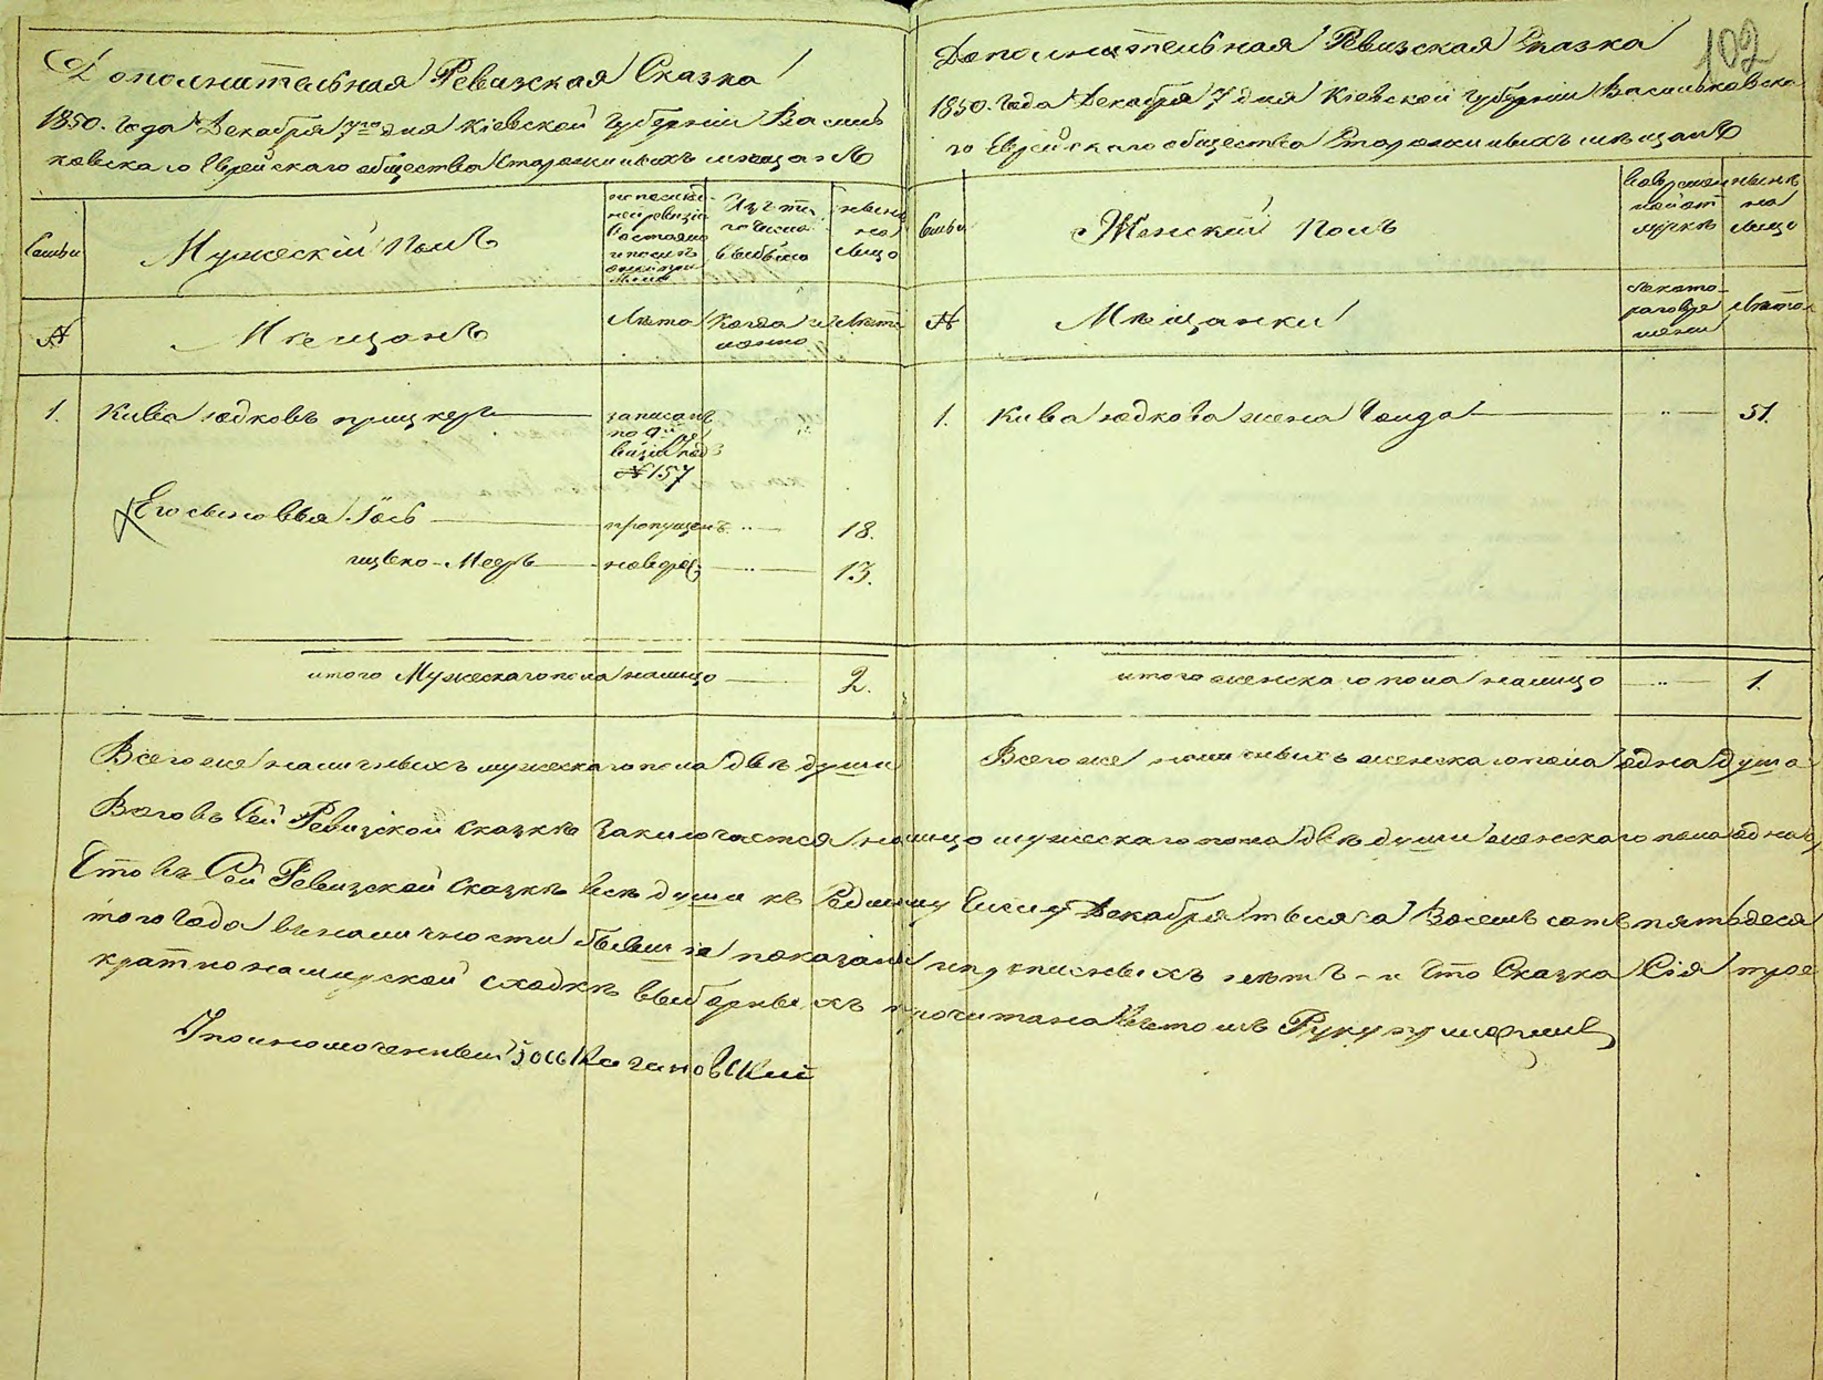 Дополнительная Ревизская Сказка
1850. Года Декабря 7го дня Кіевской Губерніи Василь
ковскаго Еврейскаго общества Старожилыхъ мещанъ
Семьи
Мужескій полъ
по послед
ней ревизіи
состояло
и после
Изъ то
го числа
выбыло
ныне
на
лицо
№
Мещанъ
Лета
Когда и
Лета
1. Кива Юдковъ прицкеръ
записанъ
по 9й ре
визіи подъ
№ 157
Его сыновья Іось пропущенъ " 18.
ицько-Мееръ новорож " 13.
итого Мужескаго пола налицо 2.
Всего же наличныхъ мужескаго пола две души
102
Дополнительная Ревизская Сказка
1850. Года Декабря 7 дня Кіевской Губерніи Васильковска
го Еврейскаго общества Старожилыхъ мещанъ
Семьи
Женскій полъ
ныне
на
лицо
№
Мещанки
съ като
раго вре
мени
Лета
1. Кива Юдкова жена Чанда " 51.
итого женскаго пола налицо " 1.
Всего же наличныхъ женскаго пола одна душа
Всего въ Сей Ревизской сказке заключается налицо мужескаго пола две души женскаго пола одна
Что въ Сей Ревизской сказке все души къ Седьмому Числу Декабря тысяча Восемь сотъ пятьдеся
того Года въ наличности бывшіе показаны и прописныхъ нетъ - и что Сказка Сія трое
кратно на мирской сходке выборныхъ прочитана въ томъ Руку
Уполномоченный Іось Кагановскій